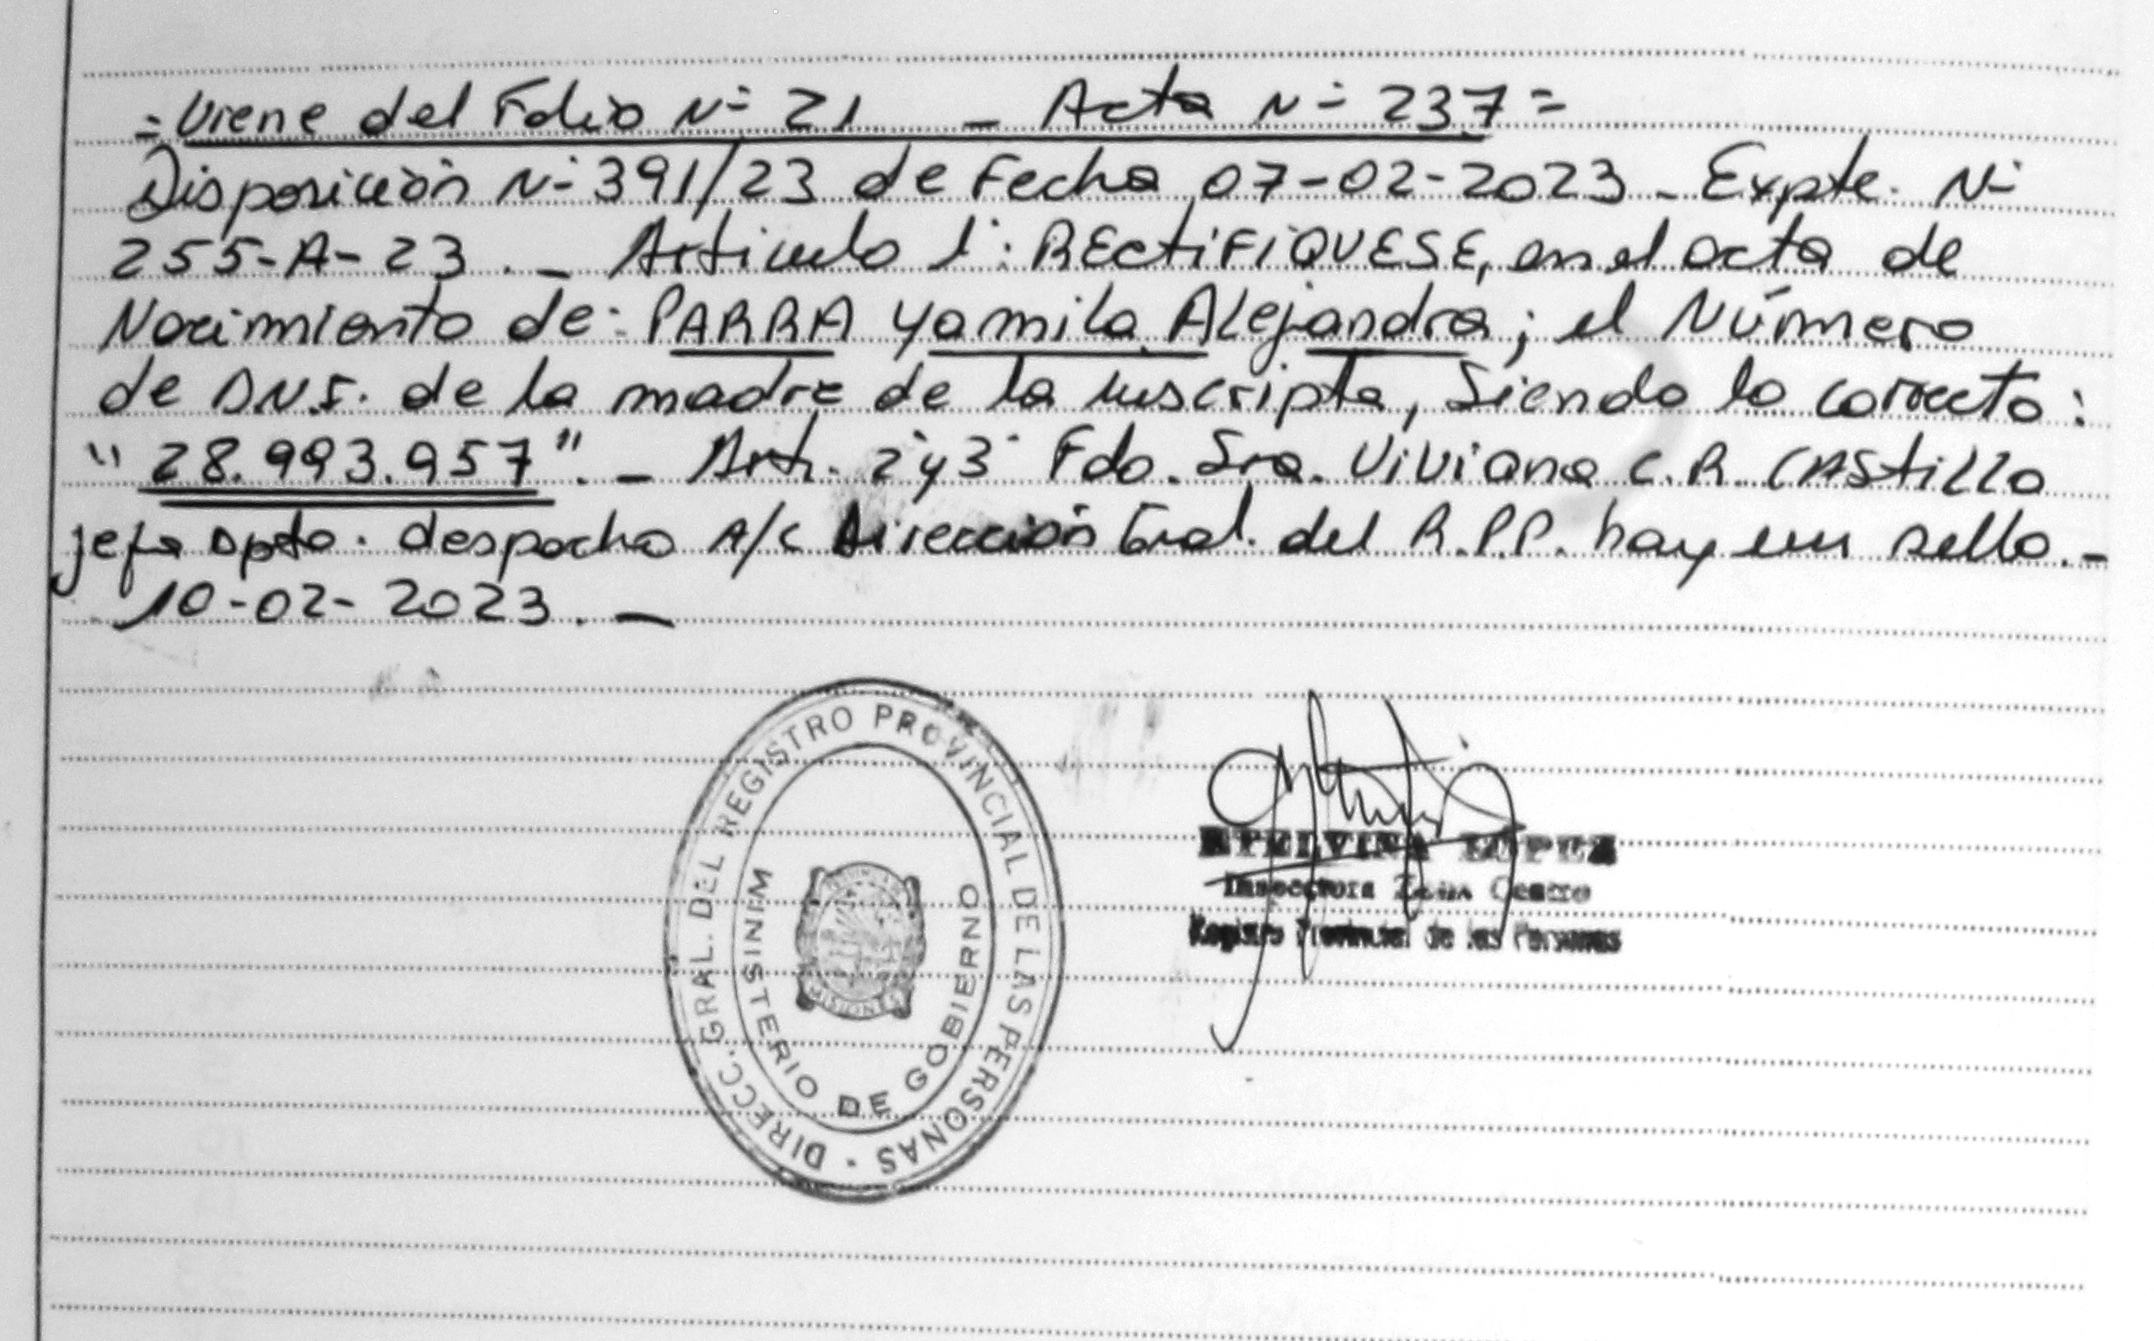 = Viene del Folio N° 21 - Acta N° 237 =
Disposición N° 391/23 de Fecha 07-02-2023 - Expte. N°
255-A-23. - Artículo 1°: RECtiFiQUESE, en el acta de
Nacimiento de: PARRA Yamila Alejandra; el Número
de DNI. de la madre de la inscripta, Siendo lo correcto:
"28.993.957". - Art. 2° y 3° Fdo. Sra. Viviana C.R. CAStillo
jefa Dpto. despacho A/C Dirección Gral. del R.P.P. hay un sello. -
10-02-2023. -
DIRECC. GRAL. DEL REGISTRO PROVINCIAL DE LAS PERSONAS -
MINISTERIO DE GOBIERNO
MISIONES
ETELVINA LOPEZ
Inspectora Zona Centro
Registro Provincial de las Personas